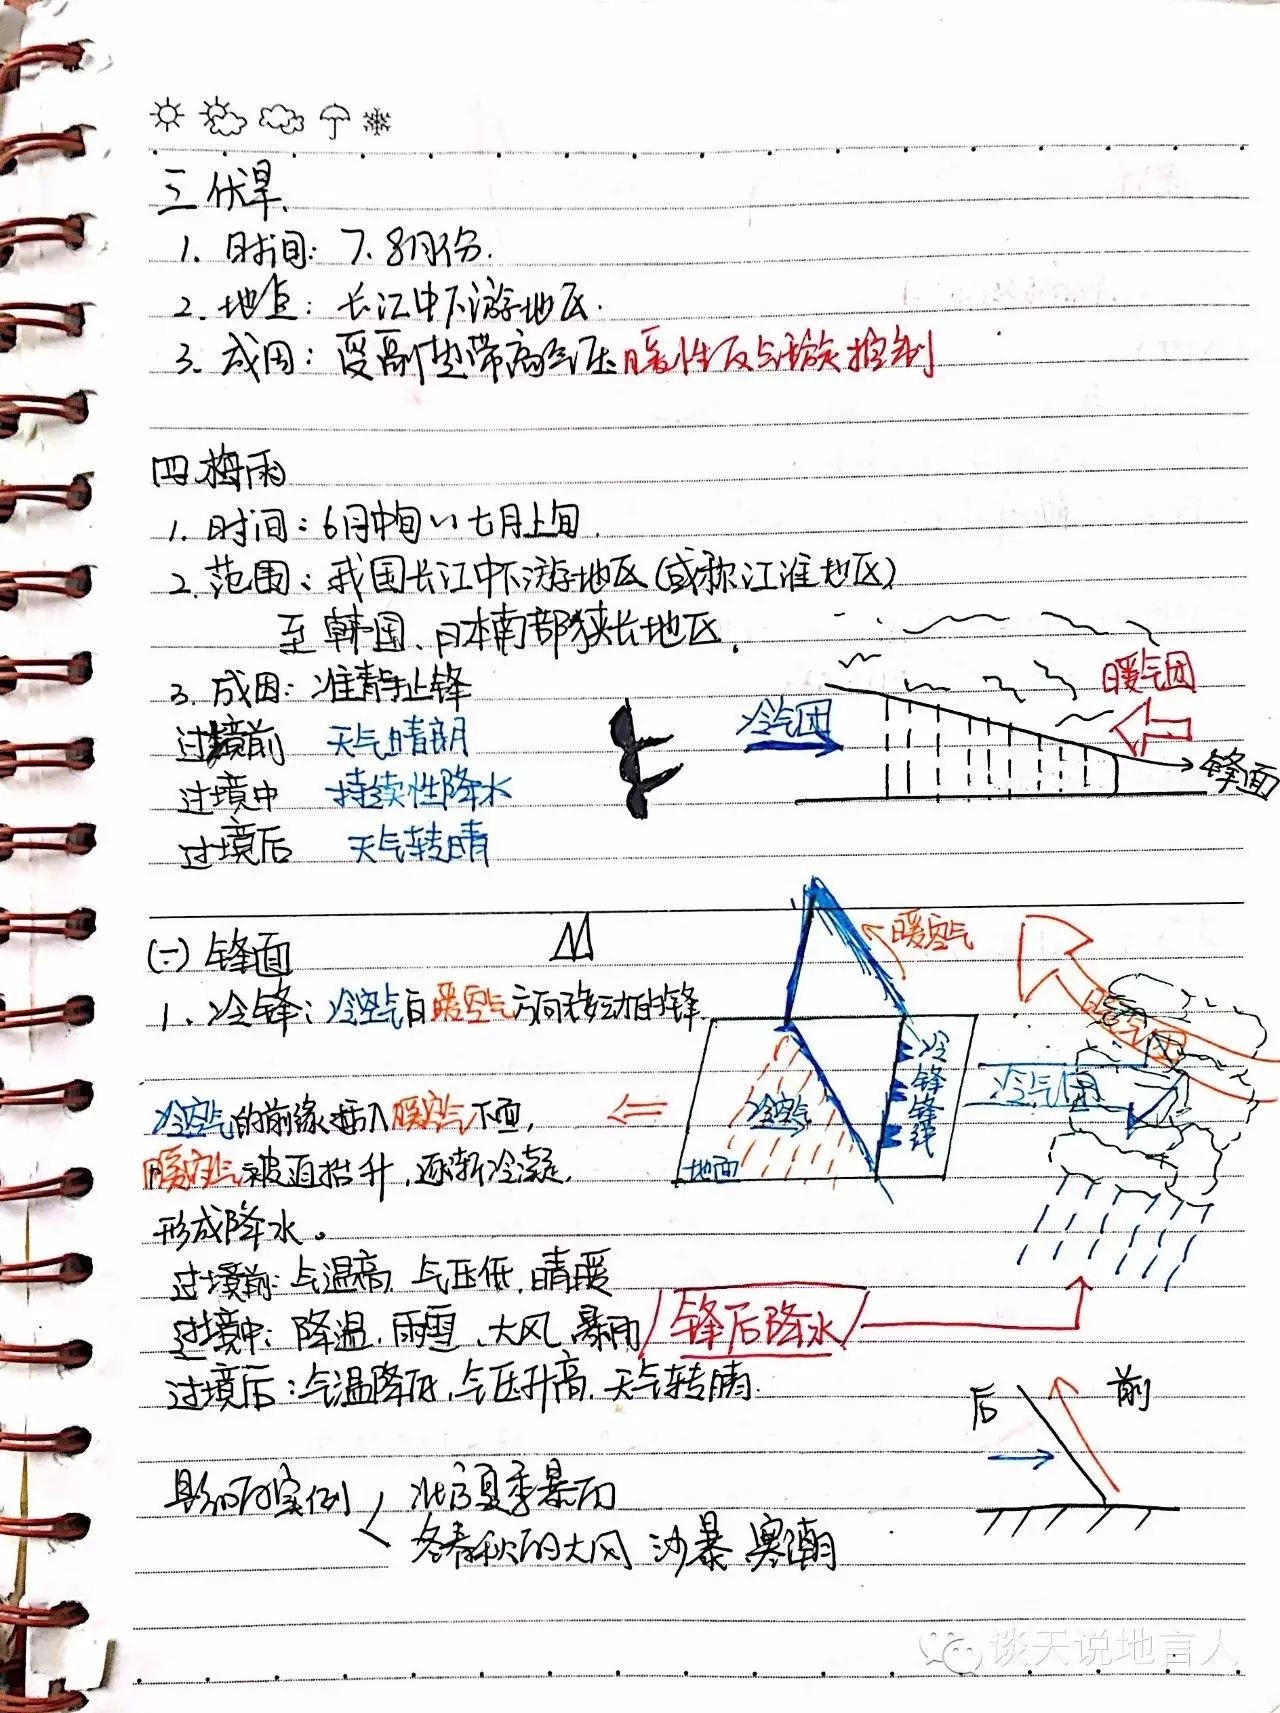 三 伏旱.
1. 时间: 7. 8月份.
2. 地点: 长江中下游地区.
3. 成因: 受副热带高气压暖性反气旋控制
四 梅雨
1. 时间: 6月中旬~七月上旬.
2. 范围: 我国长江中下游地区(或称江淮地区)
至韩国、日本南部狭长地区.
3. 成因: 准静止锋
过境前 天气晴朗
过境中 持续性降水
过境后 天气转晴
冷气团
暖气团
锋面
(一) 锋面
1. 冷锋: 冷空气向暖空气方向移动的锋.
冷空气的前缘插入暖空气下面,
暖空气被迫抬升,逐渐冷凝,
形成降水。
过境前: 气温高, 气压低, 晴暖
过境中: 降温, 雨雪、大风, 暴雨 锋后降水
过境后: 气温降低, 气压升高, 天气转晴.
暖空气
冷空气
地面
冷锋锋线
暖气团
冷气团
后
前
影响的实例
北方夏季暴雨
冬春秋的大风 沙暴 寒潮
谈天说地言人